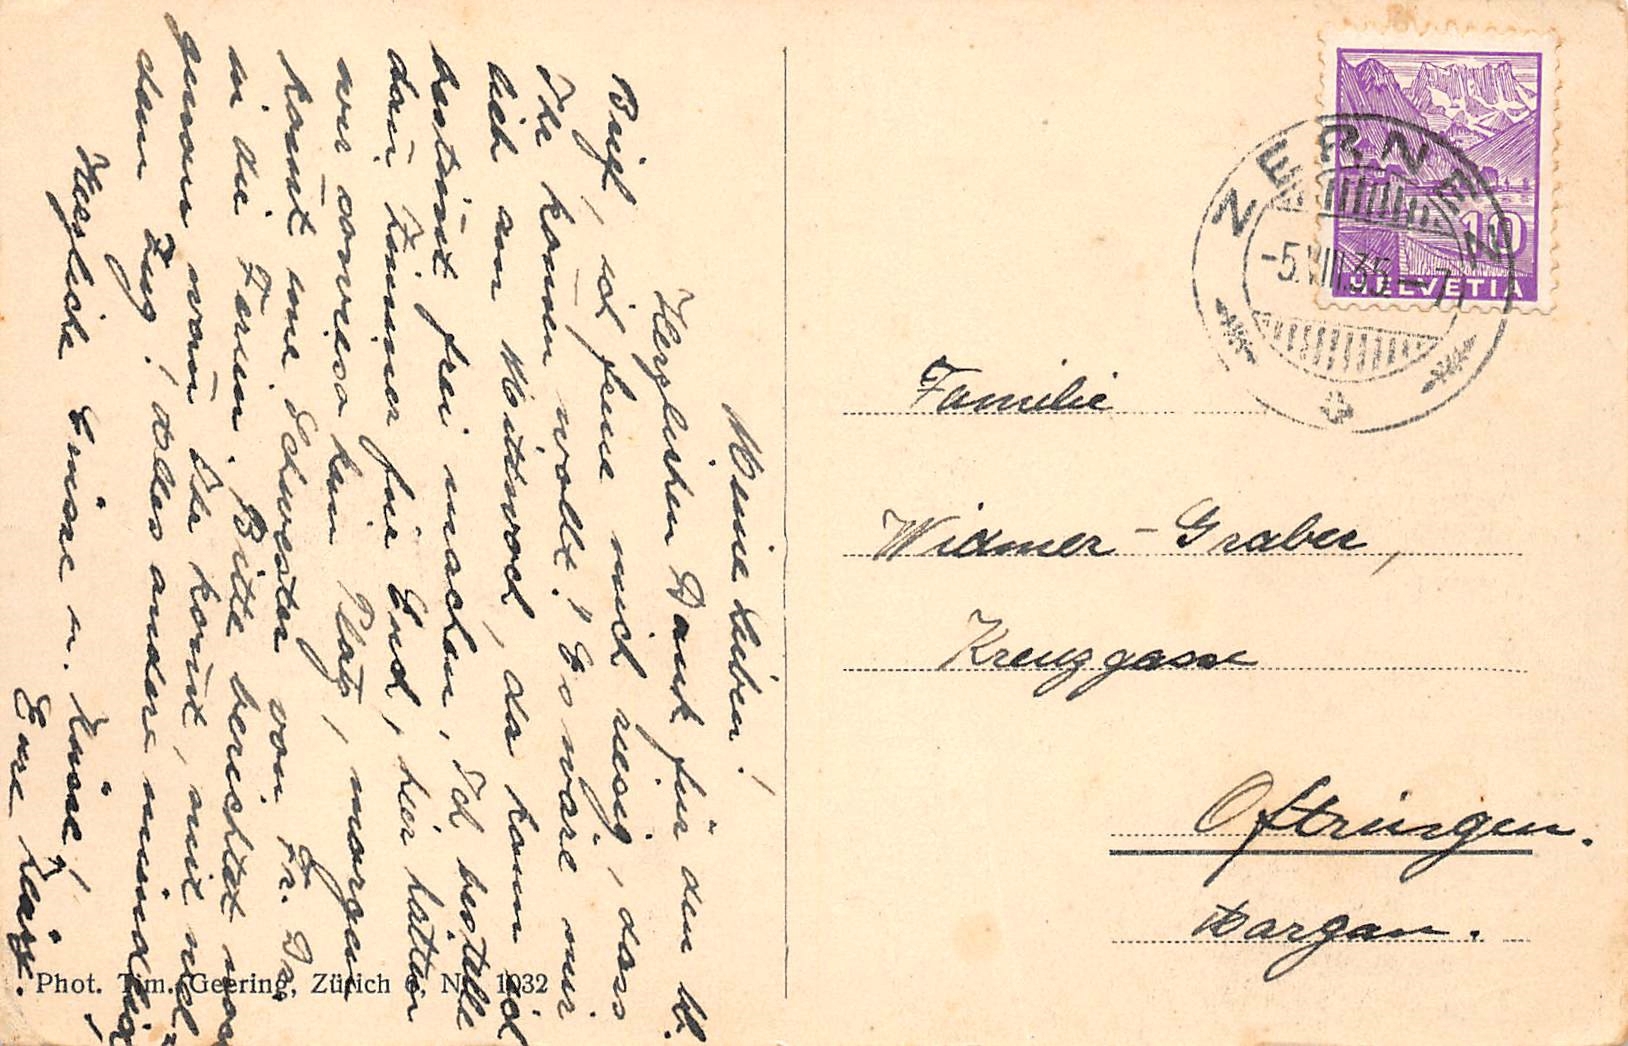 Meine Lieben!
Herzlichen Dank für den lb.
Brief, ich freue mich riesig, dass
Ihr kommen wollt! Es wäre mir
lieb am Mittwoch, da kann ich
bestimmt frei machen, Ich bestelle
dann Zimmer für Euch, hier hätten
wir sowieso kein Platz, morgen
kommt eine Schwester von Fr. Dr.
in die Ferien. Bitte berichtet noch
genau wann Ihr kommt, mit welchem
dem Zug! Alles andere mündlich!
Herzliche Grüsse u. Küsse!
Eure
Phot. Tim. Geering, Zürich 6, No. 1032
ZERNEZ
-5.VIII.35-7
10
HELVETIA
Familie
Widmer-Graber,
Kreuzgasse
Oftringen.
Aargau.